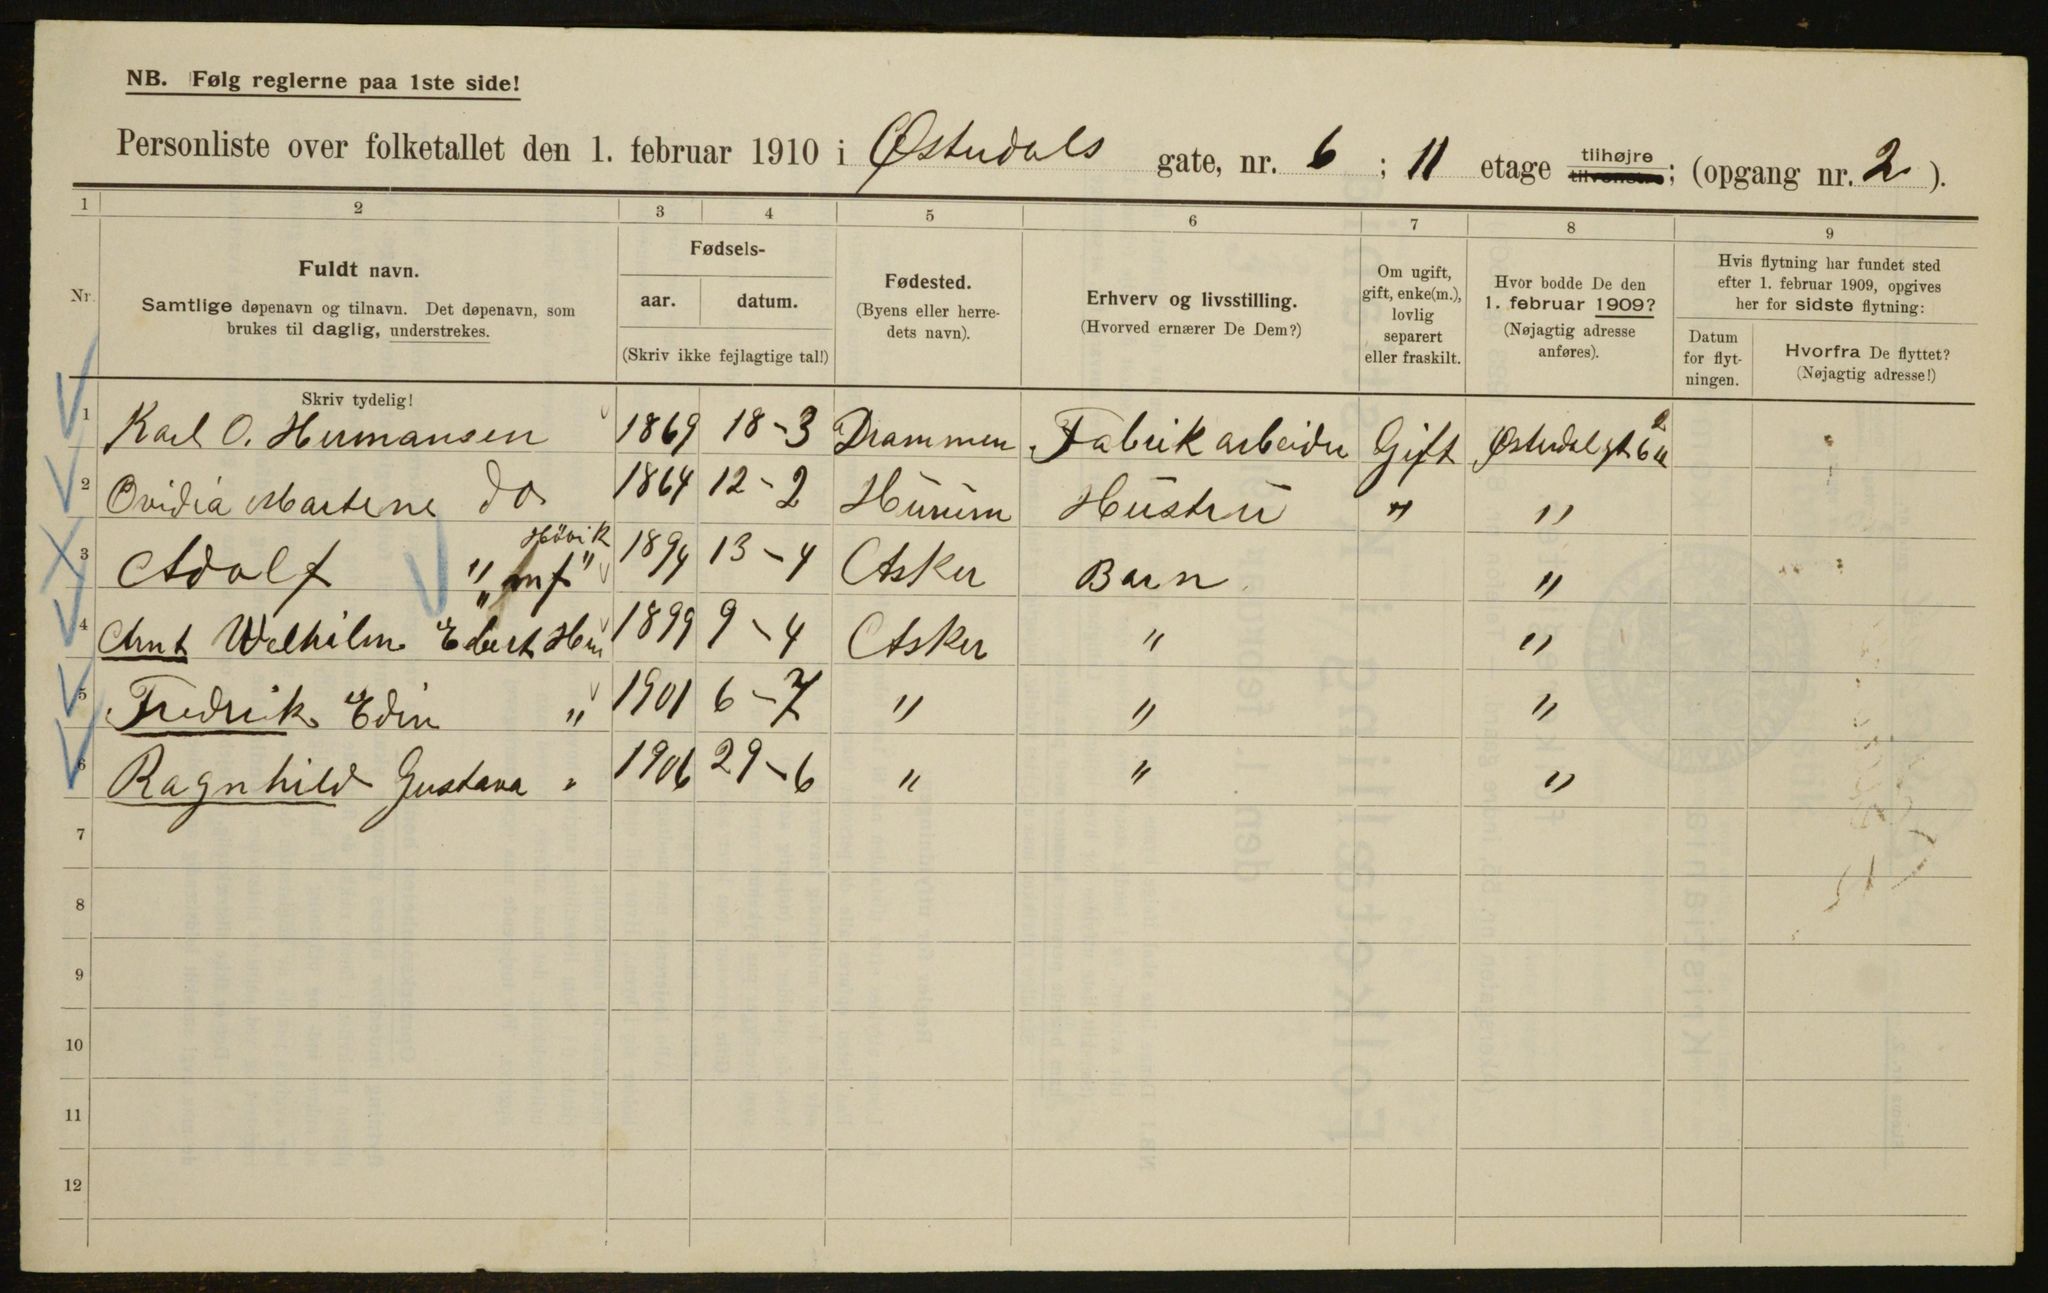 NB. Følg reglerne paa 1ste side!
Personliste over folketallet den 1. februar 1910 i Østerdals gate, nr. 6 ; 11 etage tilhøjre tilvenstre; (opgang nr. 2 ).
1 2 3 4 5 6 7 8 9
Nr.
Fuldt navn.
Samtlige døpenavn og tilnavn. Det døpenavn, som
brukes til daglig, understrekes.
Fødsels-
aar. datum.
(Skriv ikke fejlagtige tal!)
Fødested.
(Byens eller herre-
dets navn).
Erhverv og livsstilling.
(Hvorved ernærer De Dem?)
Om ugift,
gift, enke(m.),
lovlig
separert
eller fraskilt.
Hvor bodde De den
1. februar 1909?
(Nøjagtig adresse
anføres).
Hvis flytning har fundet sted
efter 1. februar 1909, opgives
her for sidste flytning:
Datum
for flyt-
ningen.
Hvorfra De flyttet?
(Nøjagtig adresse!)
Skriv tydelig!
1 Karl O. Hermansen 1869 18-3 Drammen Fabrikarbeider Gift Østerdalgt 6 2
2 Ovidia Martene do 1864 12-2 Hurum Hustru " "
Hövik
3 Adolf " " 1894 13-4 Asker Barn "
4 Arnt Welhilm Edert Her 1899 9-4 Asker " "
5 Fredrik Edin " 1901 6-7 " " "
6 Ragnhild Gustava " 1906 29-6 " " "
7
8
9
10
11
12